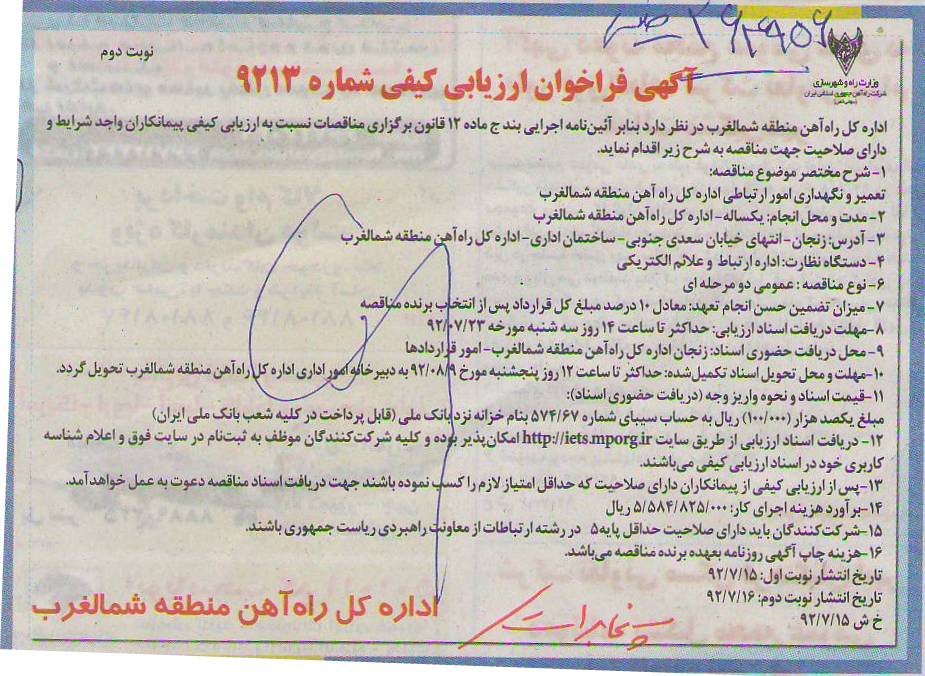 ۲۶۲۹۵۶
نوبت دوم
وزارت راه و شهرسازی
شرکت راه آهن جمهوری اسلامی ایران
آگهی فراخوان ارزیابی کیفی شماره ۹۲۱۳
اداره کل راه‌آهن منطقه شمالغرب در نظر دارد بنابر آئین‌نامه اجرایی بند ج ماده ۱۲ قانون برگزاری مناقصات نسبت به ارزیابی کیفی پیمانکاران واجد شرایط و
دارای صلاحیت جهت مناقصه به شرح زیر اقدام نماید.
۱- شرح مختصر موضوع مناقصه:
تعمیر و نگهداری امور ارتباطی اداره کل راه آهن منطقه شمالغرب
۲- مدت و محل انجام: یکساله- اداره کل راه‌آهن منطقه شمالغرب
۳- آدرس: زنجان- انتهای خیابان سعدی جنوبی- ساختمان اداری- اداره کل راه‌آهن منطقه شمالغرب
۴- دستگاه نظارت: اداره ارتباط و علائم الکتریکی
۶- نوع مناقصه: عمومی دو مرحله ای
۷- میزان تضمین حسن انجام تعهد: معادل ۱۰ درصد مبلغ کل قرارداد پس از انتخاب برنده مناقصه
۸- مهلت دریافت اسناد ارزیابی: حداکثر تا ساعت ۱۴ روز سه شنبه مورخه ۹۲/۰۷/۲۳
۹- محل دریافت حضوری اسناد: زنجان اداره کل راه‌آهن منطقه شمالغرب- امور قراردادها
۱۰- مهلت و محل تحویل اسناد تکمیل‌شده: حداکثر تا ساعت ۱۲ روز پنجشنبه مورخ ۹۲/۰۸/۹ به دبیرخانه امور اداری اداره کل راه‌آهن منطقه شمالغرب تحویل گردد.
۱۱- قیمت اسناد و نحوه واریز وجه (دریافت حضوری اسناد):
مبلغ یکصد هزار (۱۰۰/۰۰۰) ریال به حساب سیبای شماره ۵۷۴/۶۷ بنام خزانه نزد بانک ملی (قابل پرداخت در کلیه شعب بانک ملی ایران)
۱۲- دریافت اسناد ارزیابی از طریق سایت http://iets.mporg.ir امکان‌پذیر بوده و کلیه شرکت‌کنندگان موظف به ثبت‌نام در سایت فوق و اعلام شناسه
کاربری خود در اسناد ارزیابی کیفی می‌باشند.
۱۳- پس از ارزیابی کیفی از پیمانکاران دارای صلاحیت که حداقل امتیاز لازم را کسب نموده باشند جهت دریافت اسناد مناقصه دعوت به عمل خواهد آمد.
۱۴- برآورد هزینه اجرای کار: ۵/۵۸۴/۸۲۵/۰۰۰ ریال
۱۵- شرکت‌کنندگان باید دارای صلاحیت حداقل پایه ۵ در رشته ارتباطات از معاونت راهبردی ریاست جمهوری باشند.
۱۶- هزینه چاپ آگهی روزنامه بعهده برنده مناقصه می‌باشد.
تاریخ انتشار نوبت اول: ۹۲/۷/۱۵
تاریخ انتشار نوبت دوم: ۹۲/۷/۱۶
خ ش ۹۲/۷/۱۵
اداره کل راه‌آهن منطقه شمالغرب